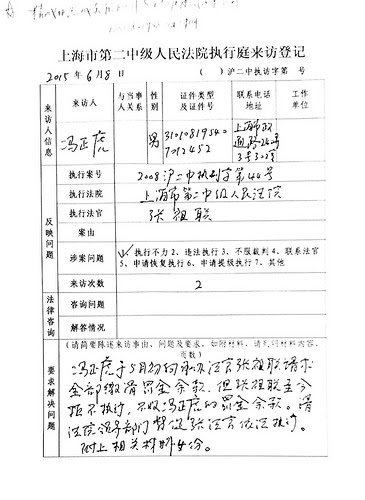 上海市第二中级人民法院执行庭来访登记
2015 年 6月8 日 ( )沪二中执访字第 号
来访人信息
来访人 与当事人关系 性别 证件类型及证件号 联系电话地址 工作单位
冯正虎 男 3101081954 7012452 上海市政通路240弄3号302室
反映问题
执行案号 2008沪二中执刑字第44号
执行法院 上海市第二中级人民法院
执行法官 张祖联
案由
涉案问题 1、执行不力 2、违法执行 3、不服裁判 4、联系法官
5、申请恢复执行 6、申请提级执行 7、其他
来访次数 2
法律咨询
咨询问题
解答情况
要求解决问题
(请简要陈述来访事由、问题及要求。如附材料,请扎明材料内容、页数)
冯正虎于5月初向承办法官张祖联请求
全部缴清罚金余款,但张祖联至今
拒不执行,不收冯正虎的罚金余款。请
法院领导部门督促张法官依法执行。
附上相关材料4份。